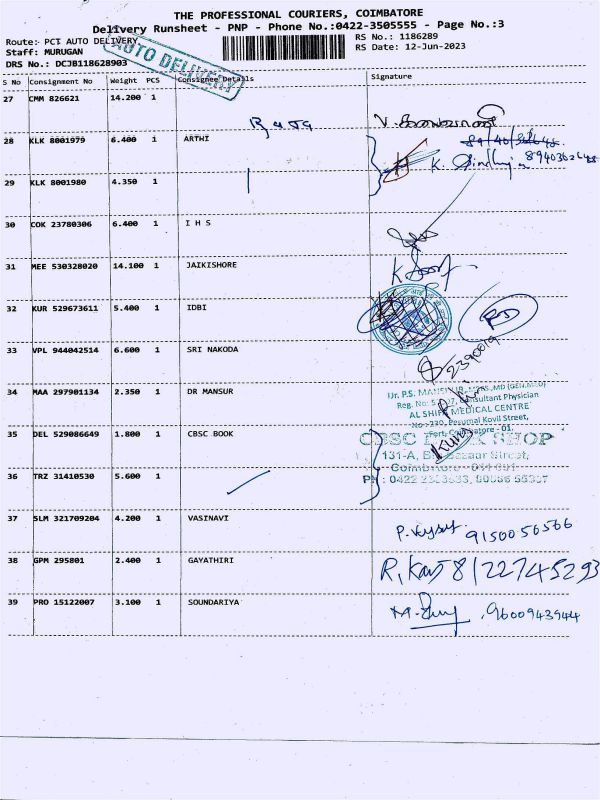 THE PROFESSIONAL COURIERS, COIMBATORE
Delivery Runsheet - PNP - Phone No.:0422-3505555 - Page No.:3
Route: PCT AUTO DELIVERY
RS No.: 1186289
Staff: MURUGAN
RS Date: 12-Jun-2023
DRS No.: DCJB118628903
AUTO DELIVERY
S No Consignment No Weight PCS Consignee Details Signature
27 CMM 826621 14.200 1
28 KLK 8001979 6.400 1 ARTHI
K. Sindhuja 8940362648
29 KLK 8001980 4.350 1
30 COK 23780306 6.400 1 I H S
31 MEE 530328020 14.100 1 JAIKISHORE
32 KUR 529673611 5.400 1 IDBI
33 VPL 944042514 6.600 1 SRI NAKODA
34 MAA 297901134 2.350 1 DR MANSUR
Dr. P.S. MANSUR, MBBS, MD (GEN.MED)
Consultant Physician
AL SHIFA MEDICAL CENTRE
No.: 230, Perumal Kovil Street,
Fort, Coimbatore - 01.
35 DEL 529086649 1.800 1 CBSC BOOK
CBSC BOOK SHOP
131-A, Big Bazaar Street,
Coimbatore - 641 001
36 TRZ 31410530 5.600 1
37 SLM 321709204 4.200 1 VASINAVI
9150056566
38 GPM 295801 2.400 1 GAYATHIRI
8122745293
39 PRO 15122007 3.100 1 SOUNDARIYA
9600943944